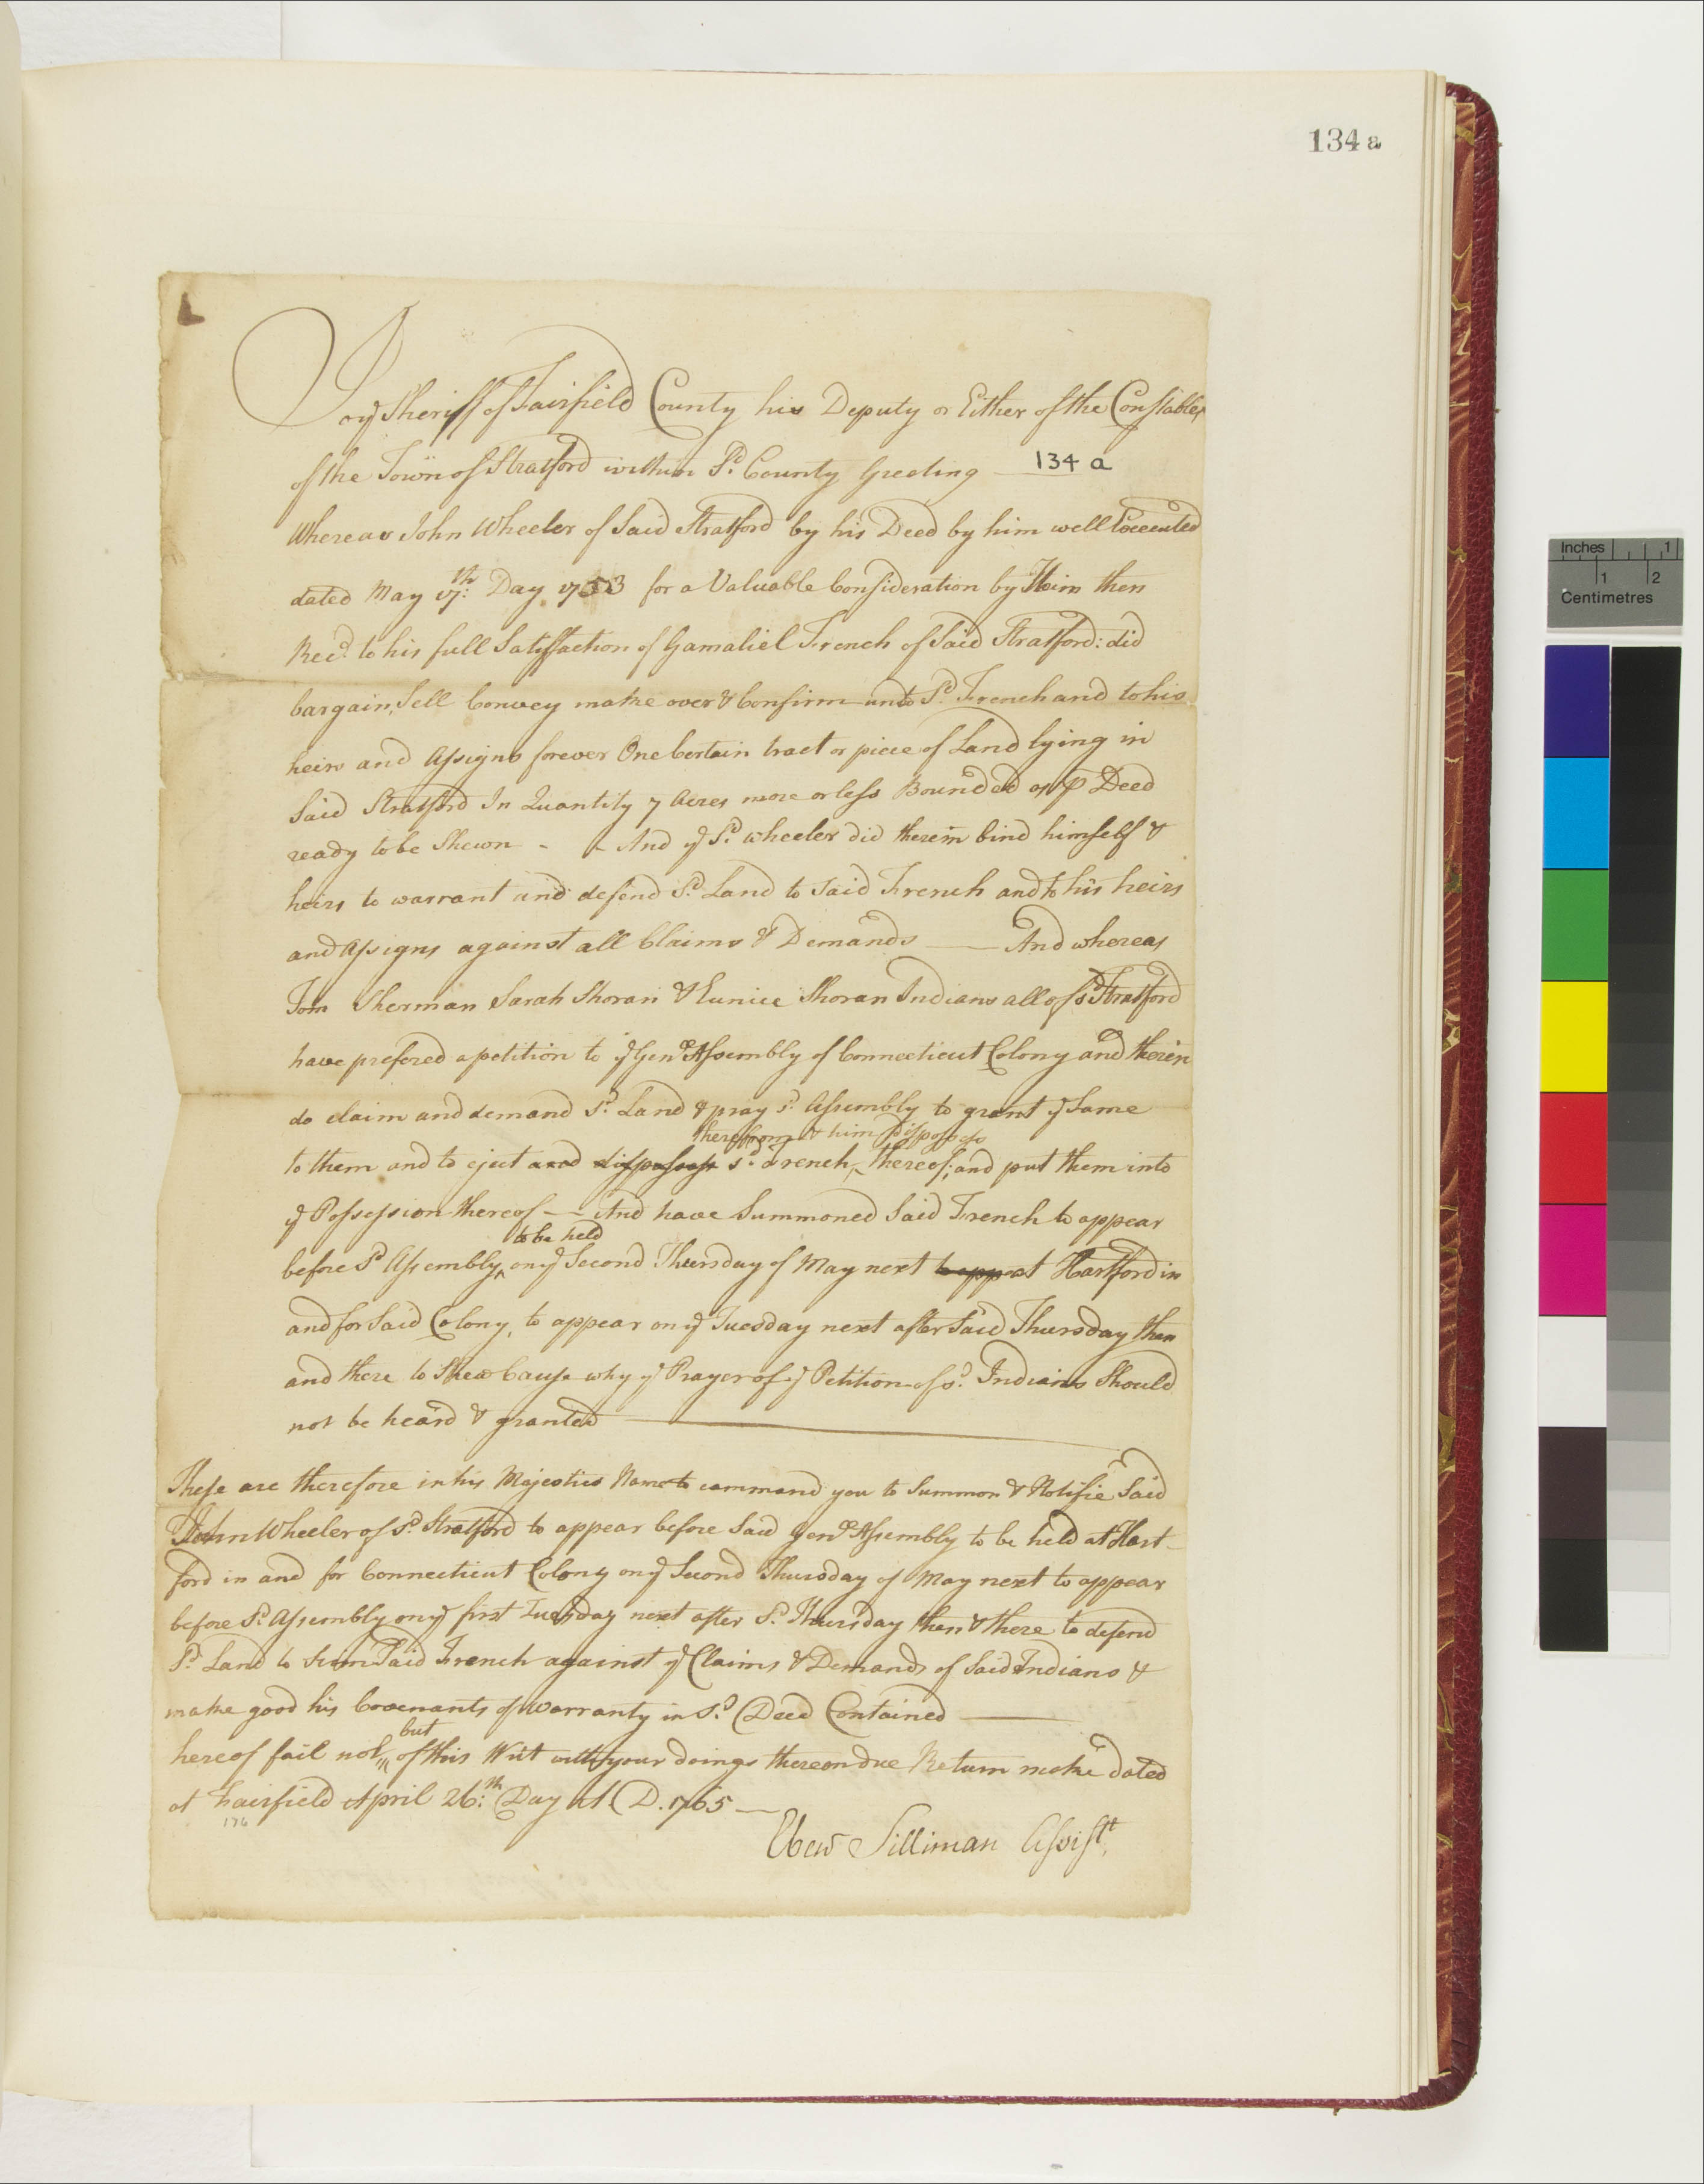 134 a
To yͤ Sheriff of Fairfield County his Deputy or Either of the Constables
of the Town of Stratford within Sd. County Greeting — 134 a
Whereas John Wheeler of Said Stratford by his Deed by him well Executed
dated May 17th: Day 1753 for a Valuable Consideration by Him then
Recd. to his full Satisfaction of Gamaliel French of Said Stratford: did
bargain, Sell Convey make over & Confirm unto Sd. French and to his
heirs and Assigns forever One Certain tract or piece of Land lying in
Said Stratford In Quantity 7 Acres more or less Bounded as ⅌ Deed
ready to be Shewn - - And yͤ Sd. wheeler did therein bind himself &
heirs to warrant and defend Sd. Land to Said French and to his heirs
and Assigns against all Claims & Demands —— And whereas
Tom Sherman Sarah Shoran & Eunice Shoran Indians all of sd Stratford
have prefered a petition to yͤ Genll Assembly of Connecticut Colony and therein
do claim and demand sd. Land & pray sd. Assembly to grant yͤ Same
therefrom & him disposess
to them and to eject and disposess sd. French, thereof; and put them into
yͤ Possession thereof —— And have Summoned Said French to appear
to be held
before Sd Assembly, on yͤ Second Thursday of May next to app at Hartford in
and for Said Colony, to appear on yͤ Tuesday next after Said Thursday then
and there to Shew Cause why yͤ Prayer of yͤ Petition of sd. Indians Should
not be heard & granted ——
These are therefore in his Majesties Name to command you to Summon & Notifie Said
John Wheeler of sd. Stratford to appear before Said Genll Assembly to be held at Hart-
ford in and for Connecticut Colony on yͤ Second Thursday of May next to appear
before Sd. Assembly on yͤ first Tuesday next after Sd. Thursday then & there to defend
Sd. Land to Said French against yͤ Claims & Demands of Said Indians &
make good his Covenants of Warranty in Sd. Deed Contained ——
but
hereof fail not, of this Writ with your doings thereon due Return make dated
at Fairfield April 26th: Day A D. 1765 —
Ebenr Silliman Assistt.
Inches 1
1 2
Centimetres